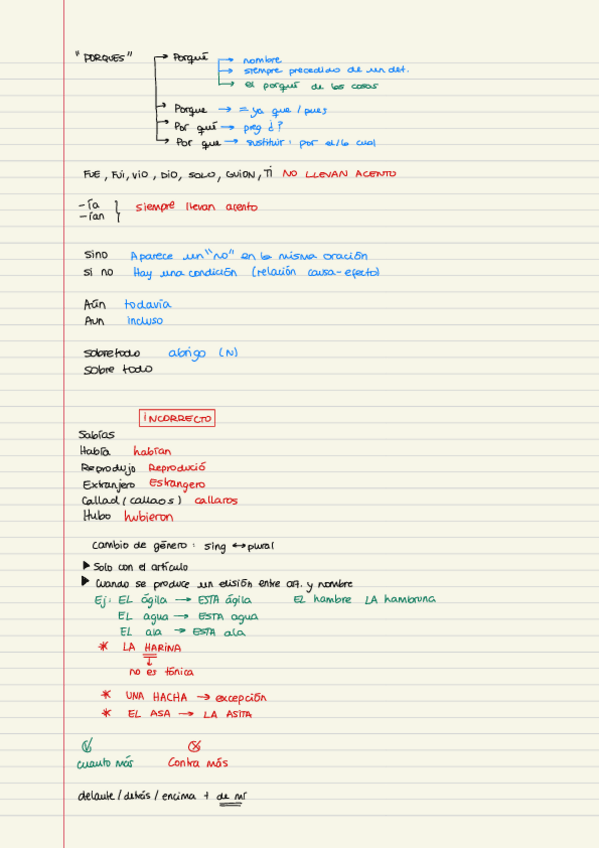 "PORQUES" Porqué nombre
siempre precedido de un det.
el porqué de las cosas
Porque = ya que / pues
Por qué preg ¿?
Por que sustituir: por el/la cual
FUE, FUI, VIO, DIO, SOLO, GUION, TI NO LLEVAN ACENTO
-ía
-ían } siempre llevan acento
Sino Aparece un "no" en la misma oración
si no Hay una condición (relación causa-efecto)
Aún todavía
Aun incluso
sobretodo abrigo (N)
sobre todo
INCORRECTO
Sabías
Había habían
Reprodujo Reprodució
Extranjero Estrangero
Callad (callaos) callaros
Hubo hubieron
Cambio de género: sing ↔ plural
▶ Solo con el artículo
▶ Cuando se produce un elisión entre art. y nombre
Ej: EL ágila → ESTA ágila EL hambre LA hambruna
EL agua → ESTA agua
EL ala → ESTA ala
* LA HARINA
↓
no es tónica
* UNA HACHA → excepción
* EL ASA → LA ASITA
cuanto más Contra más
delante / detrás / encima + de mí